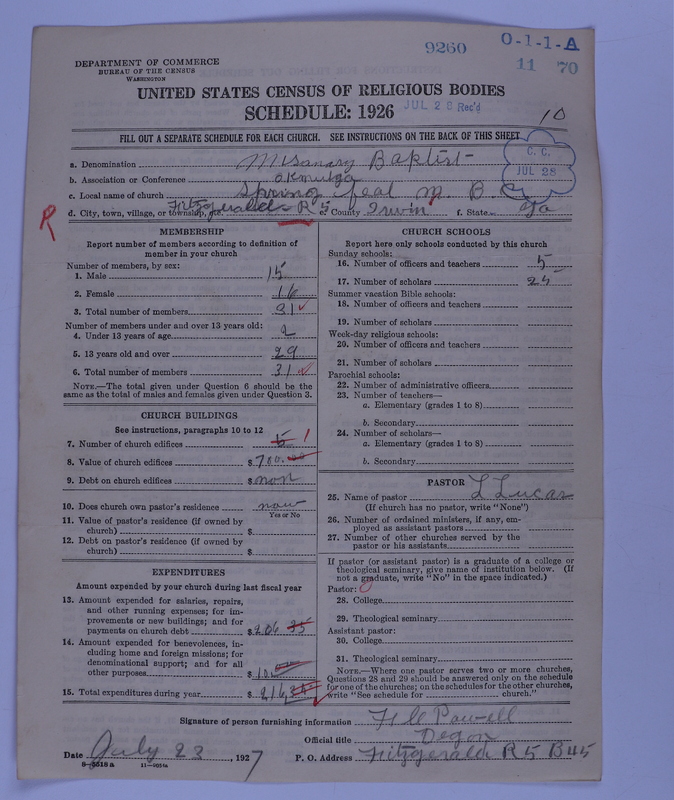 9260
0-1-1-A
11 70
DEPARTMENT OF COMMERCE
BUREAU OF THE CENSUS
WASHINGTON
UNITED STATES CENSUS OF RELIGIOUS BODIES
SCHEDULE: 1926
JUL 28 Rec'd
10
FILL OUT A SEPARATE SCHEDULE FOR EACH CHURCH. SEE INSTRUCTIONS ON THE BACK OF THIS SHEET
C. C.
JUL 28
a. Denomination Misanary Baptist
b. Association or Conference okmulga
c. Local name of church Spring feal M. B. C
R
d. City, town, village, or township, etc. Fitzgerald R 5 e. County Irwin f. State Ga
MEMBERSHIP
Report number of members according to definition of member in your church
Number of members, by sex:
1. Male 15
2. Female 16
3. Total number of members 31
Number of members under and over 13 years old:
4. Under 13 years of age 2
5. 13 years old and over 29
6. Total number of members 31
NOTE.—The total given under Question 6 should be
same as the total of males and females given under Question 3.
CHURCH BUILDINGS
See instructions, paragraphs 10 to 12
7. Number of church edifices 1
8. Value of church edifices $700.00
9. Debt on church edifices $non
10. Does church own pastor's residence now
Yes or No
11. Value of pastor's residence (if owned by
church) $
12. Debt on pastor's residence (if owned by
church) $
EXPENDITURES
Amount expended by your church during last fiscal year
13. Amount expended for salaries, repairs,
and other running expenses; for im-
provements or new buildings; and for
payments on church debt $206 35
14. Amount expended for benevolences, in-
cluding home and foreign missions; for
denominational support; and for all
other purposes $10 00
15. Total expenditures during year $216,35
CHURCH SCHOOLS
Report here only schools conducted by this church
Sunday schools:
16. Number of officers and teachers 5
17. Number of scholars 25
Summer vacation Bible schools:
18. Number of officers and teachers
19. Number of scholars
Week-day religious schools:
20. Number of officers and teachers
21. Number of scholars
Parochial schools:
22. Number of administrative officers
23. Number of teachers—
a. Elementary (grades 1 to 8)
b. Secondary
24. Number of scholars—
a. Elementary (grades 1 to 8)
b. Secondary
PASTOR
25. Name of pastor L Lucas
(If church has no pastor, write "None")
26. Number of ordained ministers, if any, em-
ployed as assistant pastors
27. Number of other churches served by the
pastor or his assistants
If pastor (or assistant pastor) is a graduate of a college or
theological seminary, give name of institution below. (If
not a graduate, write "No" in the space indicated.)
Pastor: 0
28. College
29. Theological seminary
Assistant pastor:
30. College
31. Theological seminary
NOTE.—Where one pastor serves two or more churches,
Questions 28 and 29 should be answered only on the schedule
for one of the churches; on the schedules for the other churches,
write "See schedule for church."
Signature of person furnishing information Powell
Official title Degon
Date July 23, 1927 P. O. Address Fitzgerald R 5 B 45
8-5518a 11-9051a